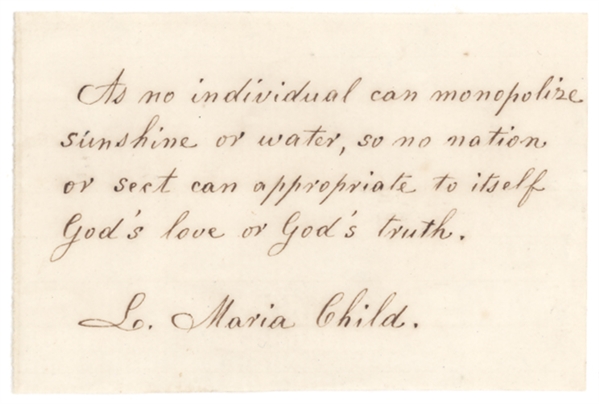 As no individual can monopolize
sunshine or water, so no nation
or sect can appropriate to itself
God's love or God's truth.
L. Maria Child.